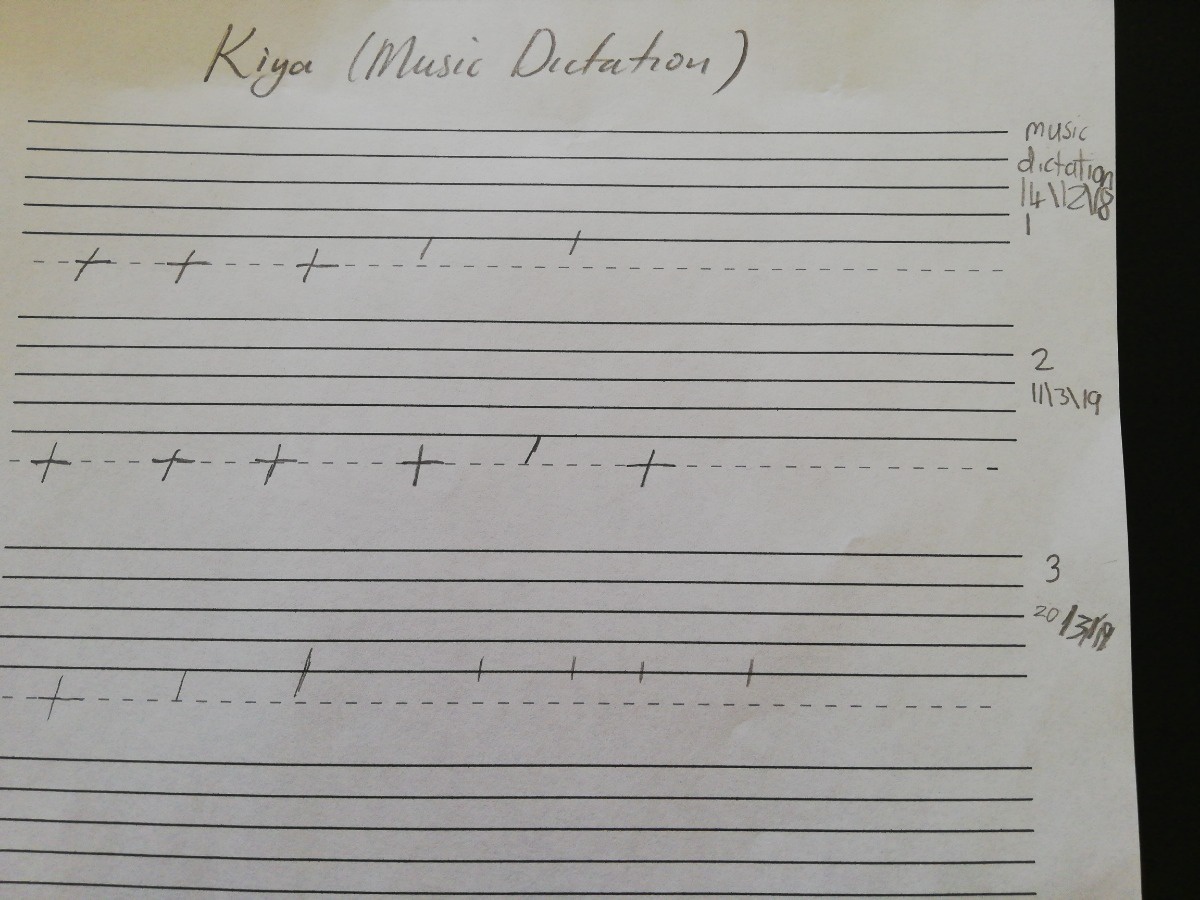 Kiya (Music Dictation)
music
dictation
14\12\18
1
2
11\3\19
3
20/3/19